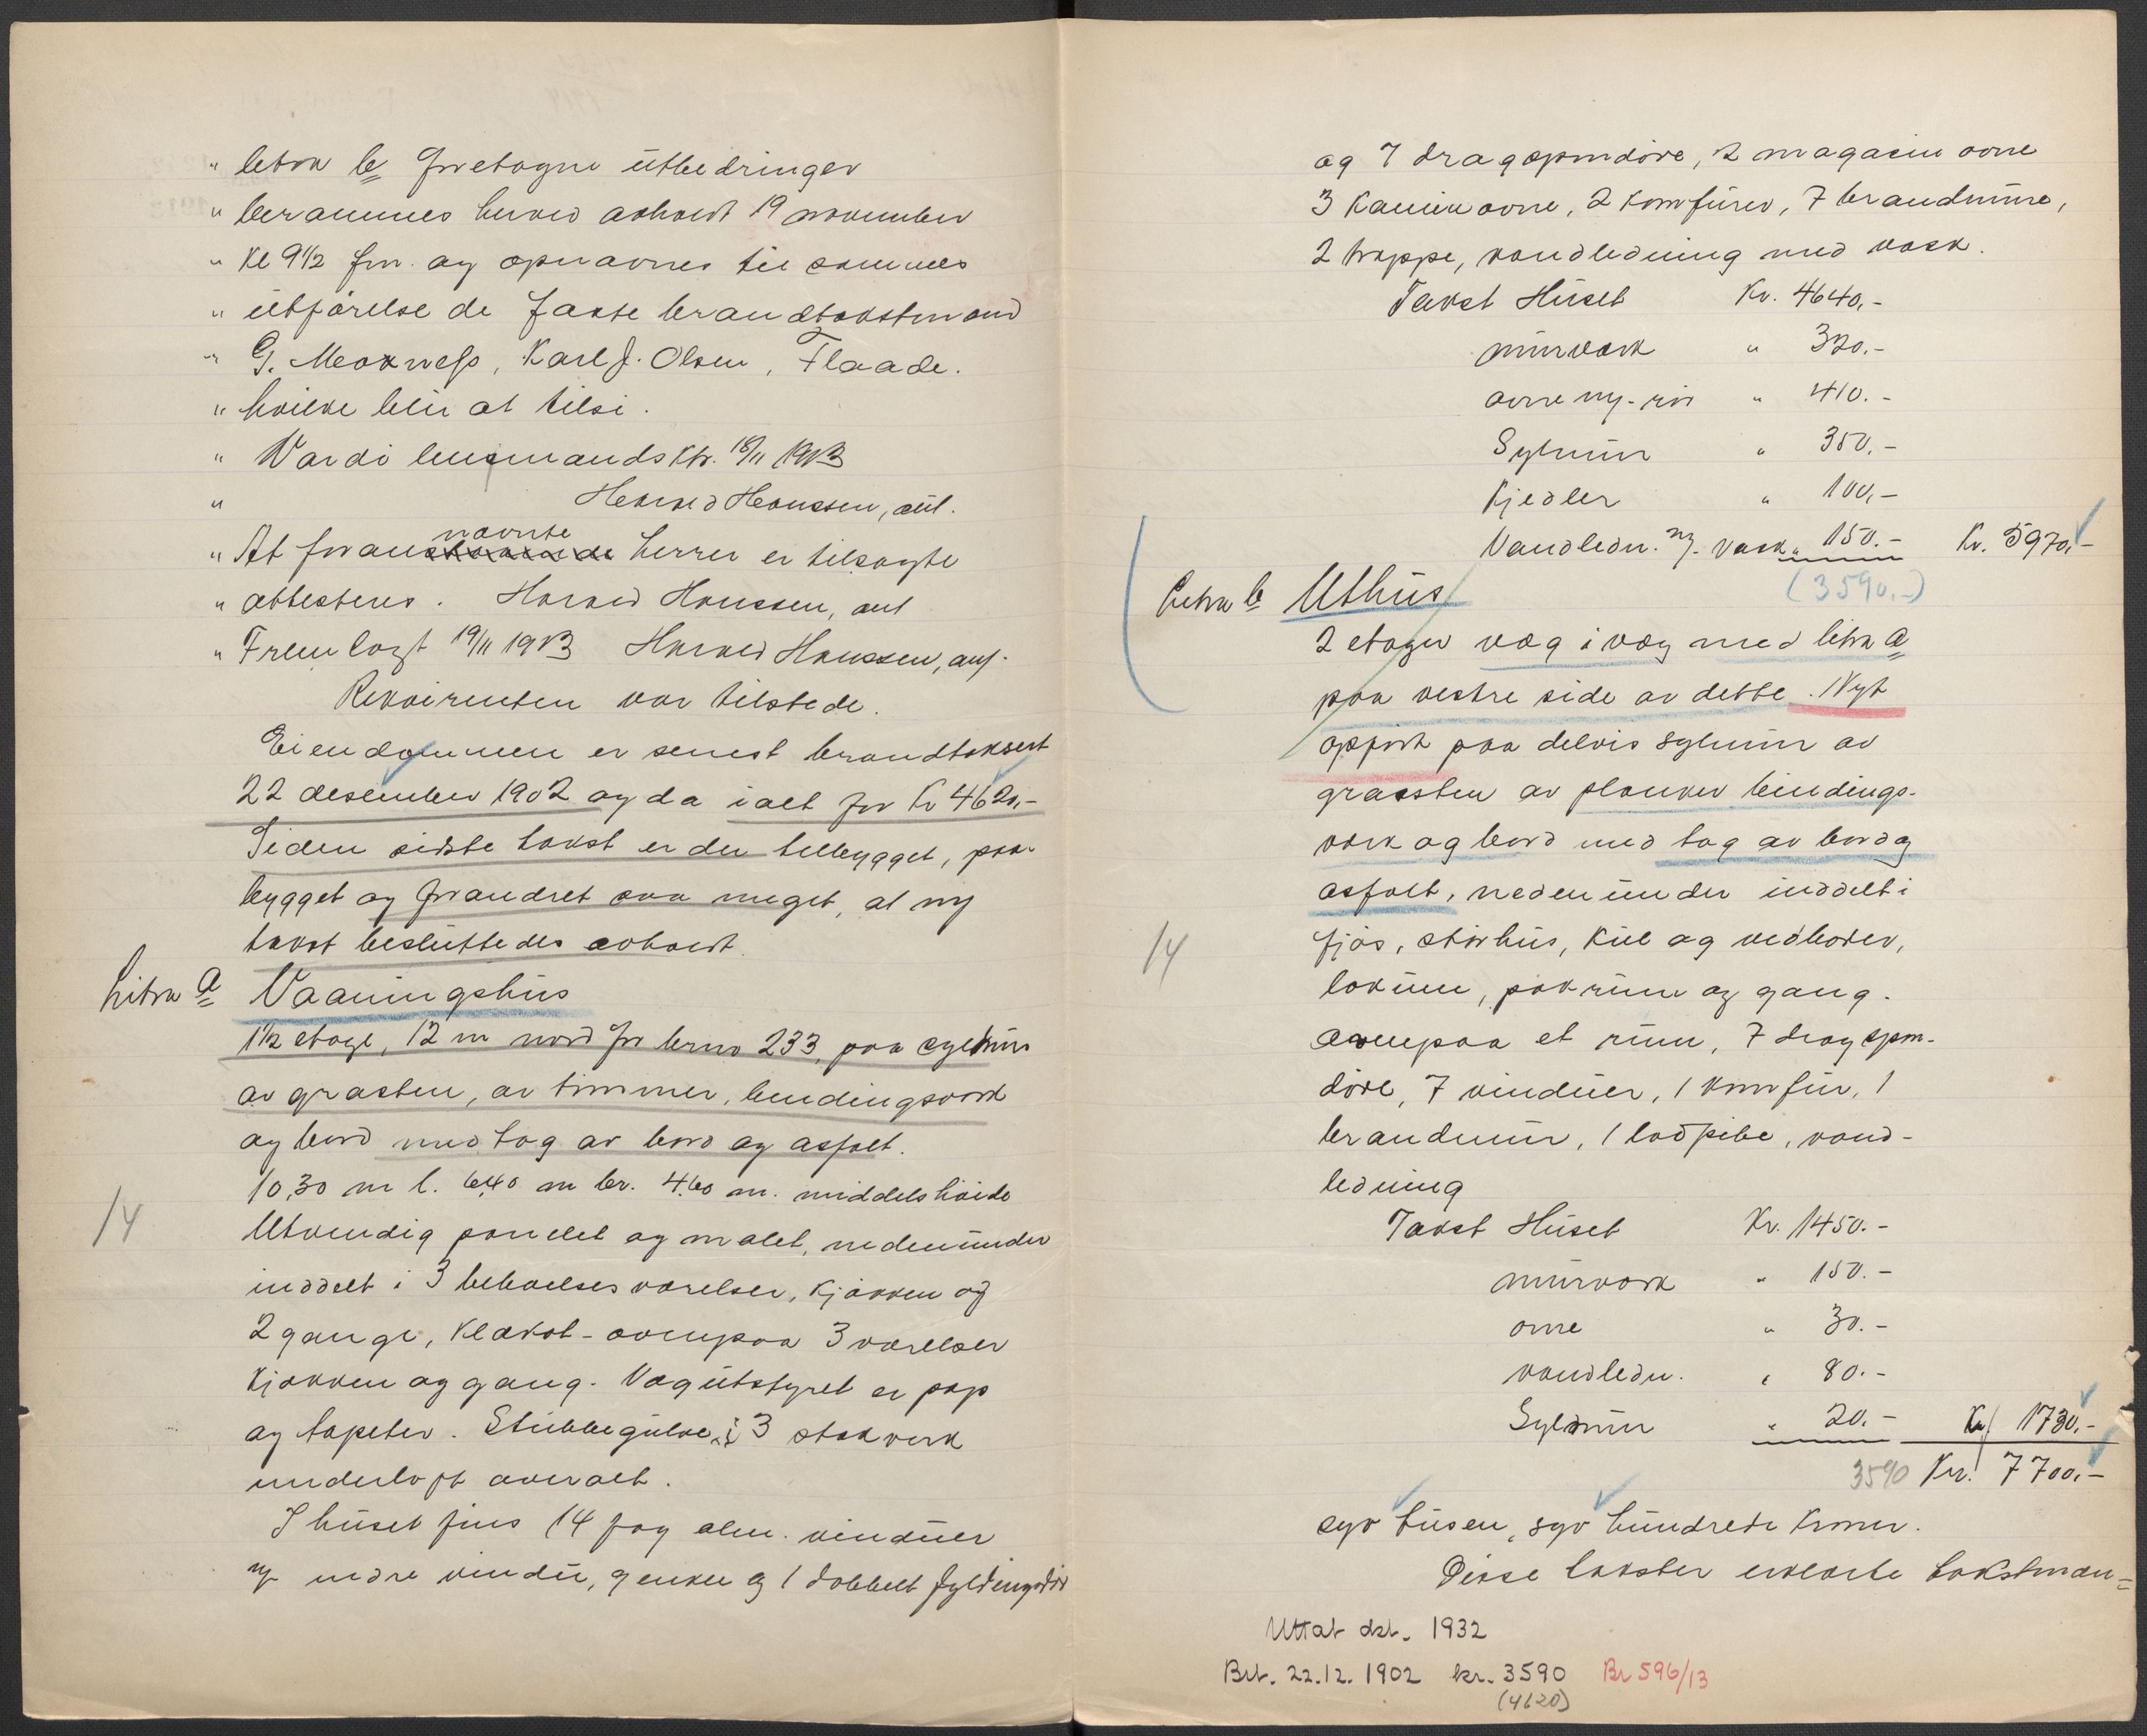 " litra b foretagne utbedringer
" berammes herved avholdt 19 november
" Kl 9½ fm. og opnævnes til sammes
" utförelse de faste brandtakstmænd
" G. Mexness, Karl J. Olsen, Flaade.
" hvilke blir at tilsi.
" Vardö lensmandsktr. 18/11 1913
" Harald Hanssen, aut.
nævnte
" At foran herrer er tilsagte
" attesteres. Harald Hanssen, aut
" Fremlagt 19/11 1913 Harald Hanssen, auf.
Rekvirenten var tilstede.
Eiendommen er senest brandtaksert
22 desember 1902 og da ialt for Kr 4620,-
Siden sidste takst er der tilbygget, paa-
bygget og forandret saa meget, at ny
takst besluttedes avholdt.
Litra a Vaaningshus
1½ etage, 12 m nord for br no 233, paa sylmur
av graasten, av tømmer, bindingsverk
og bord med tag av bord og asfalt.
10,30 m l. 6,40 m br. 4,60 m. middelshöide
Utvendig panelet og malet, nedenunder
inddelt i 3 beboelsesværelser, kjøkken og
2 gange, klækst - ovenpaa 3 værelser
kjøkken og gang. Vægutstyret er pap
og tapeter. Stubbegulve i 3 stokverk
underloft overalt.
I huset fins 14 fag alm. vinduer
og mdre vindu, 9 enkle og 1 dobbelt fyldingsdör
og 7 dragspmdöre, 2 magasin ovne
3 Kaminovne, 2 komfurer, 7 brandmure,
2 trappe, vandledning med vask.
Takst Huset Kr. 4640,-
murverk " 320.-
ovne m/- rör " 410.-
Sylmur " 350.-
Kjedler " 100,-
Vandledn. m/- vask " 150.- Kr. 5970,-
(3590.-)
Litra b Uthus
2 etager væg i væg med litra a
paa vestre side av dette. Nyt
opført paa delvis sylmur av
graasten av planker bindings-
verk og bord med tag av bord og
asfalt, nedenunder inddelt i
fjøs, störhus, kul og vedboder,
lokum, pakrum og gang.
Ovenpaa et rum, 7 dragspm-
döre, 7 vinduer, 1 komfur, 1
brandmur, 1 lodpibe, vand-
ledning
Takst Huset Kr. 1450.-
murverk " 150.-
ovne " 30.-
vandledn. " 80.-
Sylmur " 20.- Kr. 1730,-
3590 Kr. 7700,-
syv tusen, syv hundrede kroner.
Disse takster erklærte takstmæn=
14
14
Uttat okt. 1932
Brt. 22.12. 1902 kr. 3590 Br 596/13
(4620)